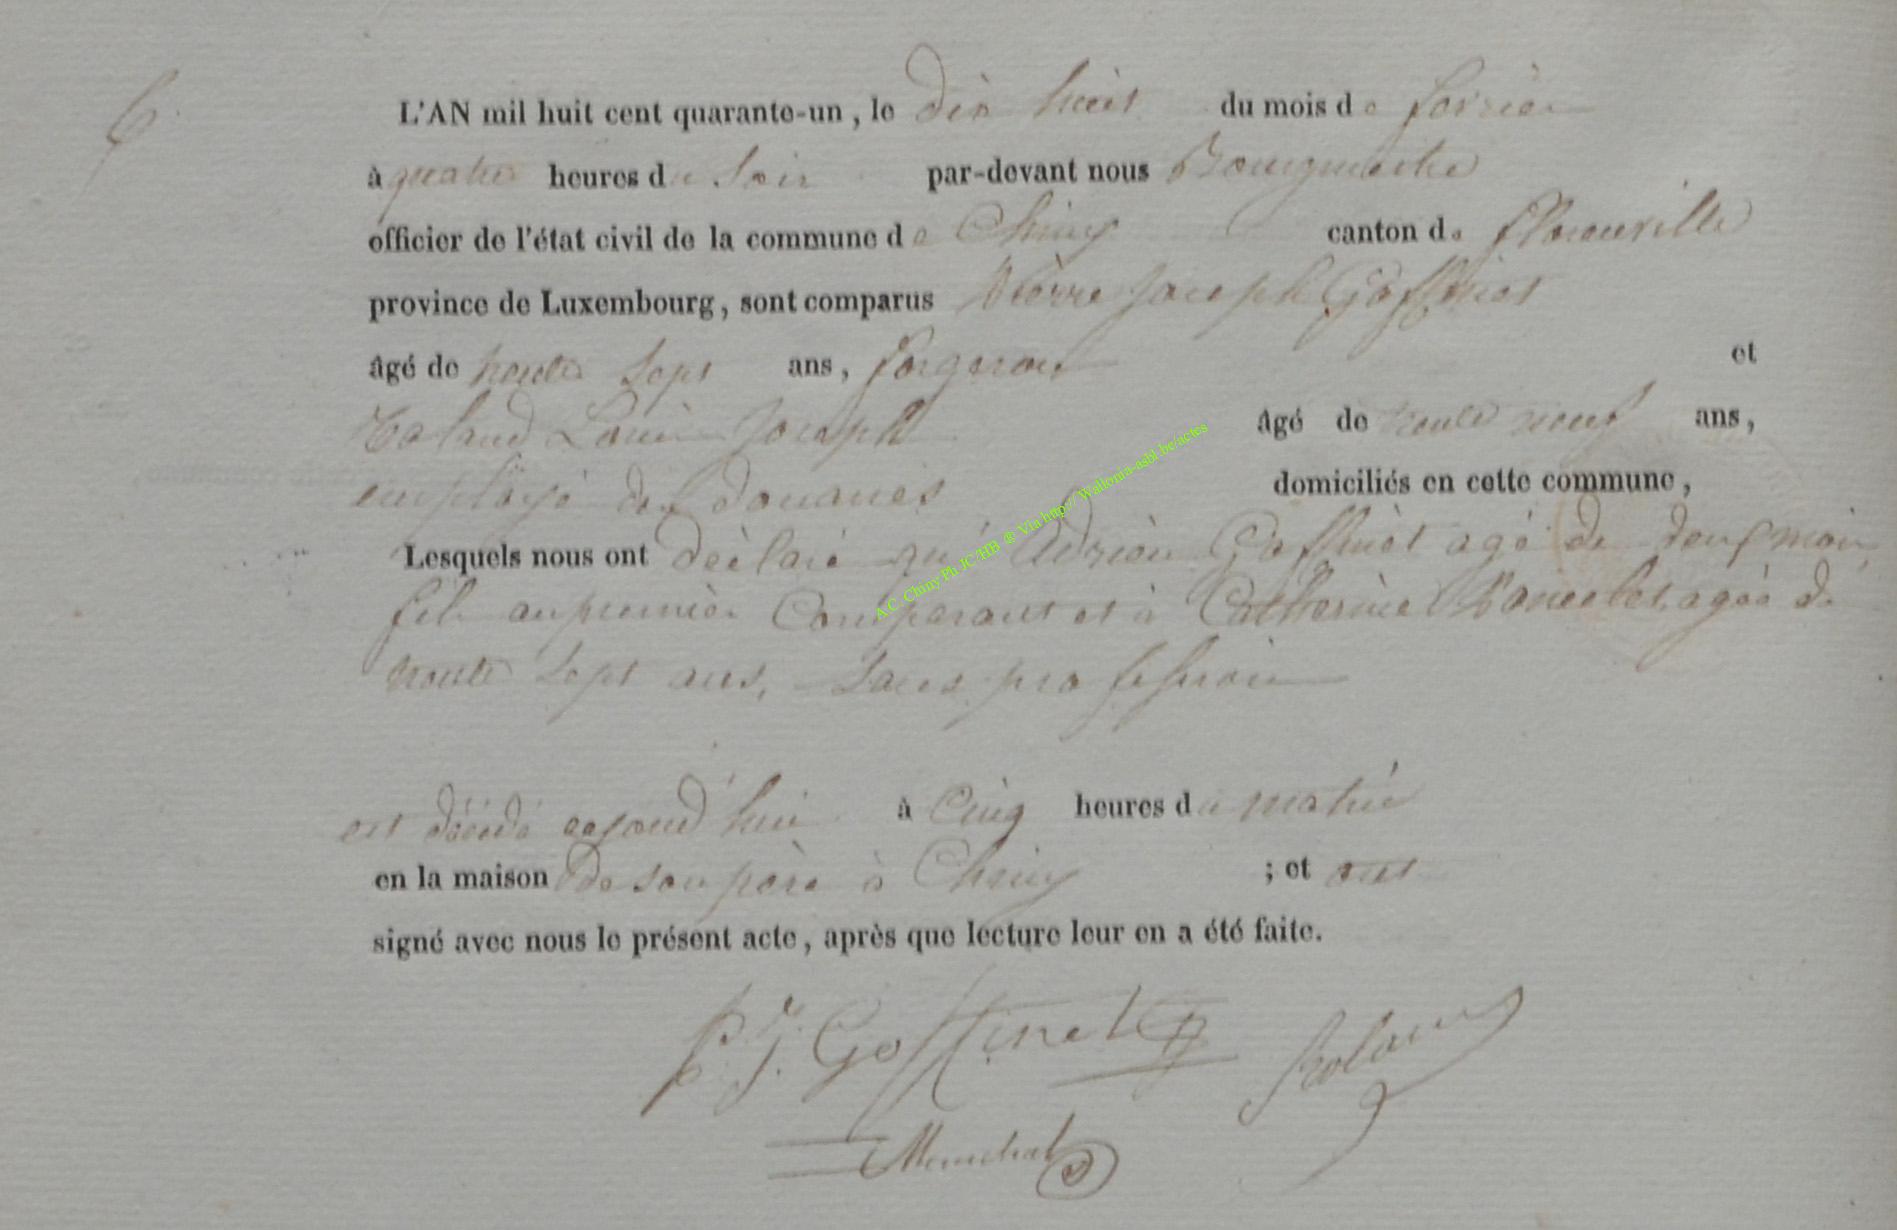 6.
L'AN mil huit cent quarante-un, le dix huit du mois de fevrier
à quatre heures du Soir par-devant nous Bourgmestre
officier de l'état civil de la commune de Chiny canton de florenville
province de Luxembourg, sont comparus Pierre Joseph Goffinet
âgé de trente Sept ans, forgeron et
Roland Louis Joseph âgé de trente neuf ans,
employé des douanes domiciliés en cette commune,
Lesquels nous ont déclaré qu'Adrien Goffinet agé de deux mois
fils au premier Comparant et à Catherine agée de
trente Sept ans, Sans profession
est décédé aujourd'hui à Cinq heures du matin
en la maison de son père à Chiny ; et ont
signé avec nous le présent acte, après que lecture leur en a été faite.
P. J. Goffinet Roland
A.C. Chiny Ph JC-HB @ Via http:// Wallonia-asbl.be/actes